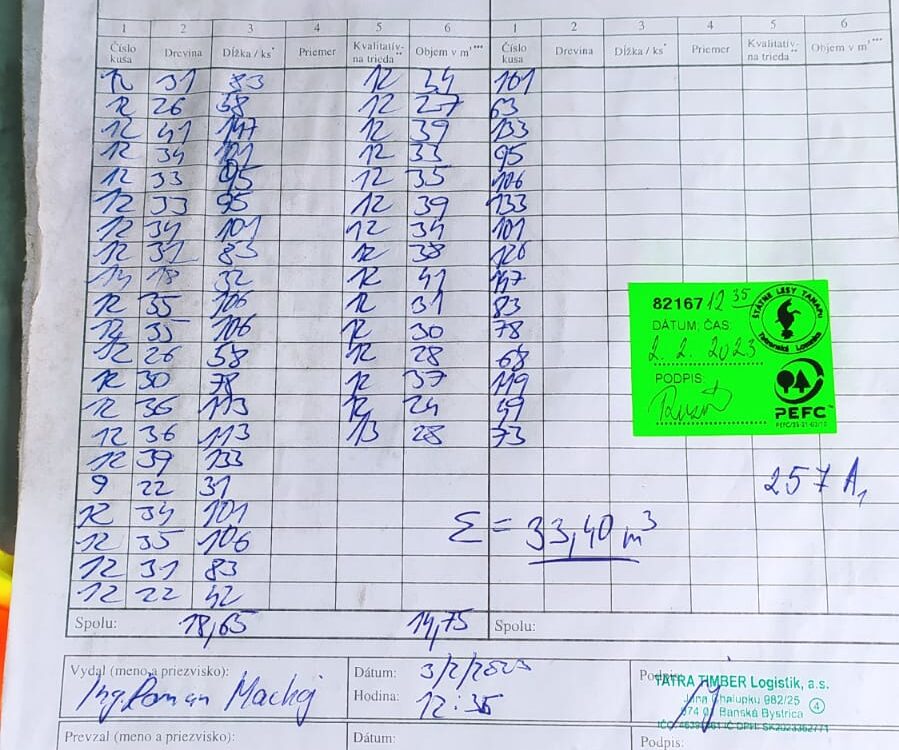 1 2 3 4 5 6 1 2 3 4 5 6
Číslo kusa Drevina Dĺžka / ks* Priemer Kvalitatív- na trieda** Objem v m³*** Číslo kusa Drevina Dĺžka / ks* Priemer Kvalitatív- na trieda** Objem v m³***
12 31 83 12 34 101
12 26 58 12 27 63
12 41 147 12 39 133
12 34 101 12 33 95
12 33 95 12 35 106
12 33 95 12 39 133
12 34 101 12 34 101
12 31 83 12 38 126
18 32 12 41 147
12 35 106 12 31 83
12 35 106 12 30 78
12 26 58 12 28 68
12 30 78 12 37 119
12 36 113 12 24 49
12 36 113 13 28 73
12 39 133
9 22 31
12 34 101
12 35 106
12 31 83
12 22 42
82167 12 35
ŠTÁTNE LESY TANAPU
Tatranská Lomnica
DÁTUM, ČAS:
2. 2. 2023
PODPIS:
PEFC™
257 A1
Σ = 33,40 m³
Spolu: 18,65 14,75 Spolu:
Vydal (meno a priezvisko): Dátum: 3/2/2023 Podpis:
Ing. Roman Hodina: 12:35
TATRA TIMBER Logistik, a.s.
Chalupku 982/25
974 01 Banská Bystrica
4
Prevzal (meno a priezvisko): Dátum: Podpis: